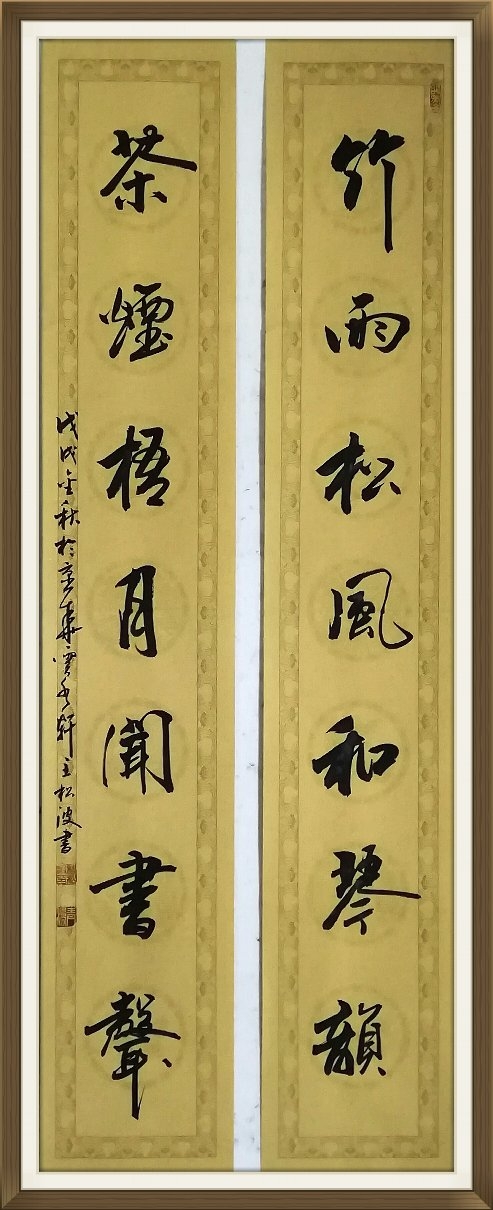 竹雨松風和琴韻
茶煙梧月聞書聲
戊戌金秋於京華寶香軒主松波書